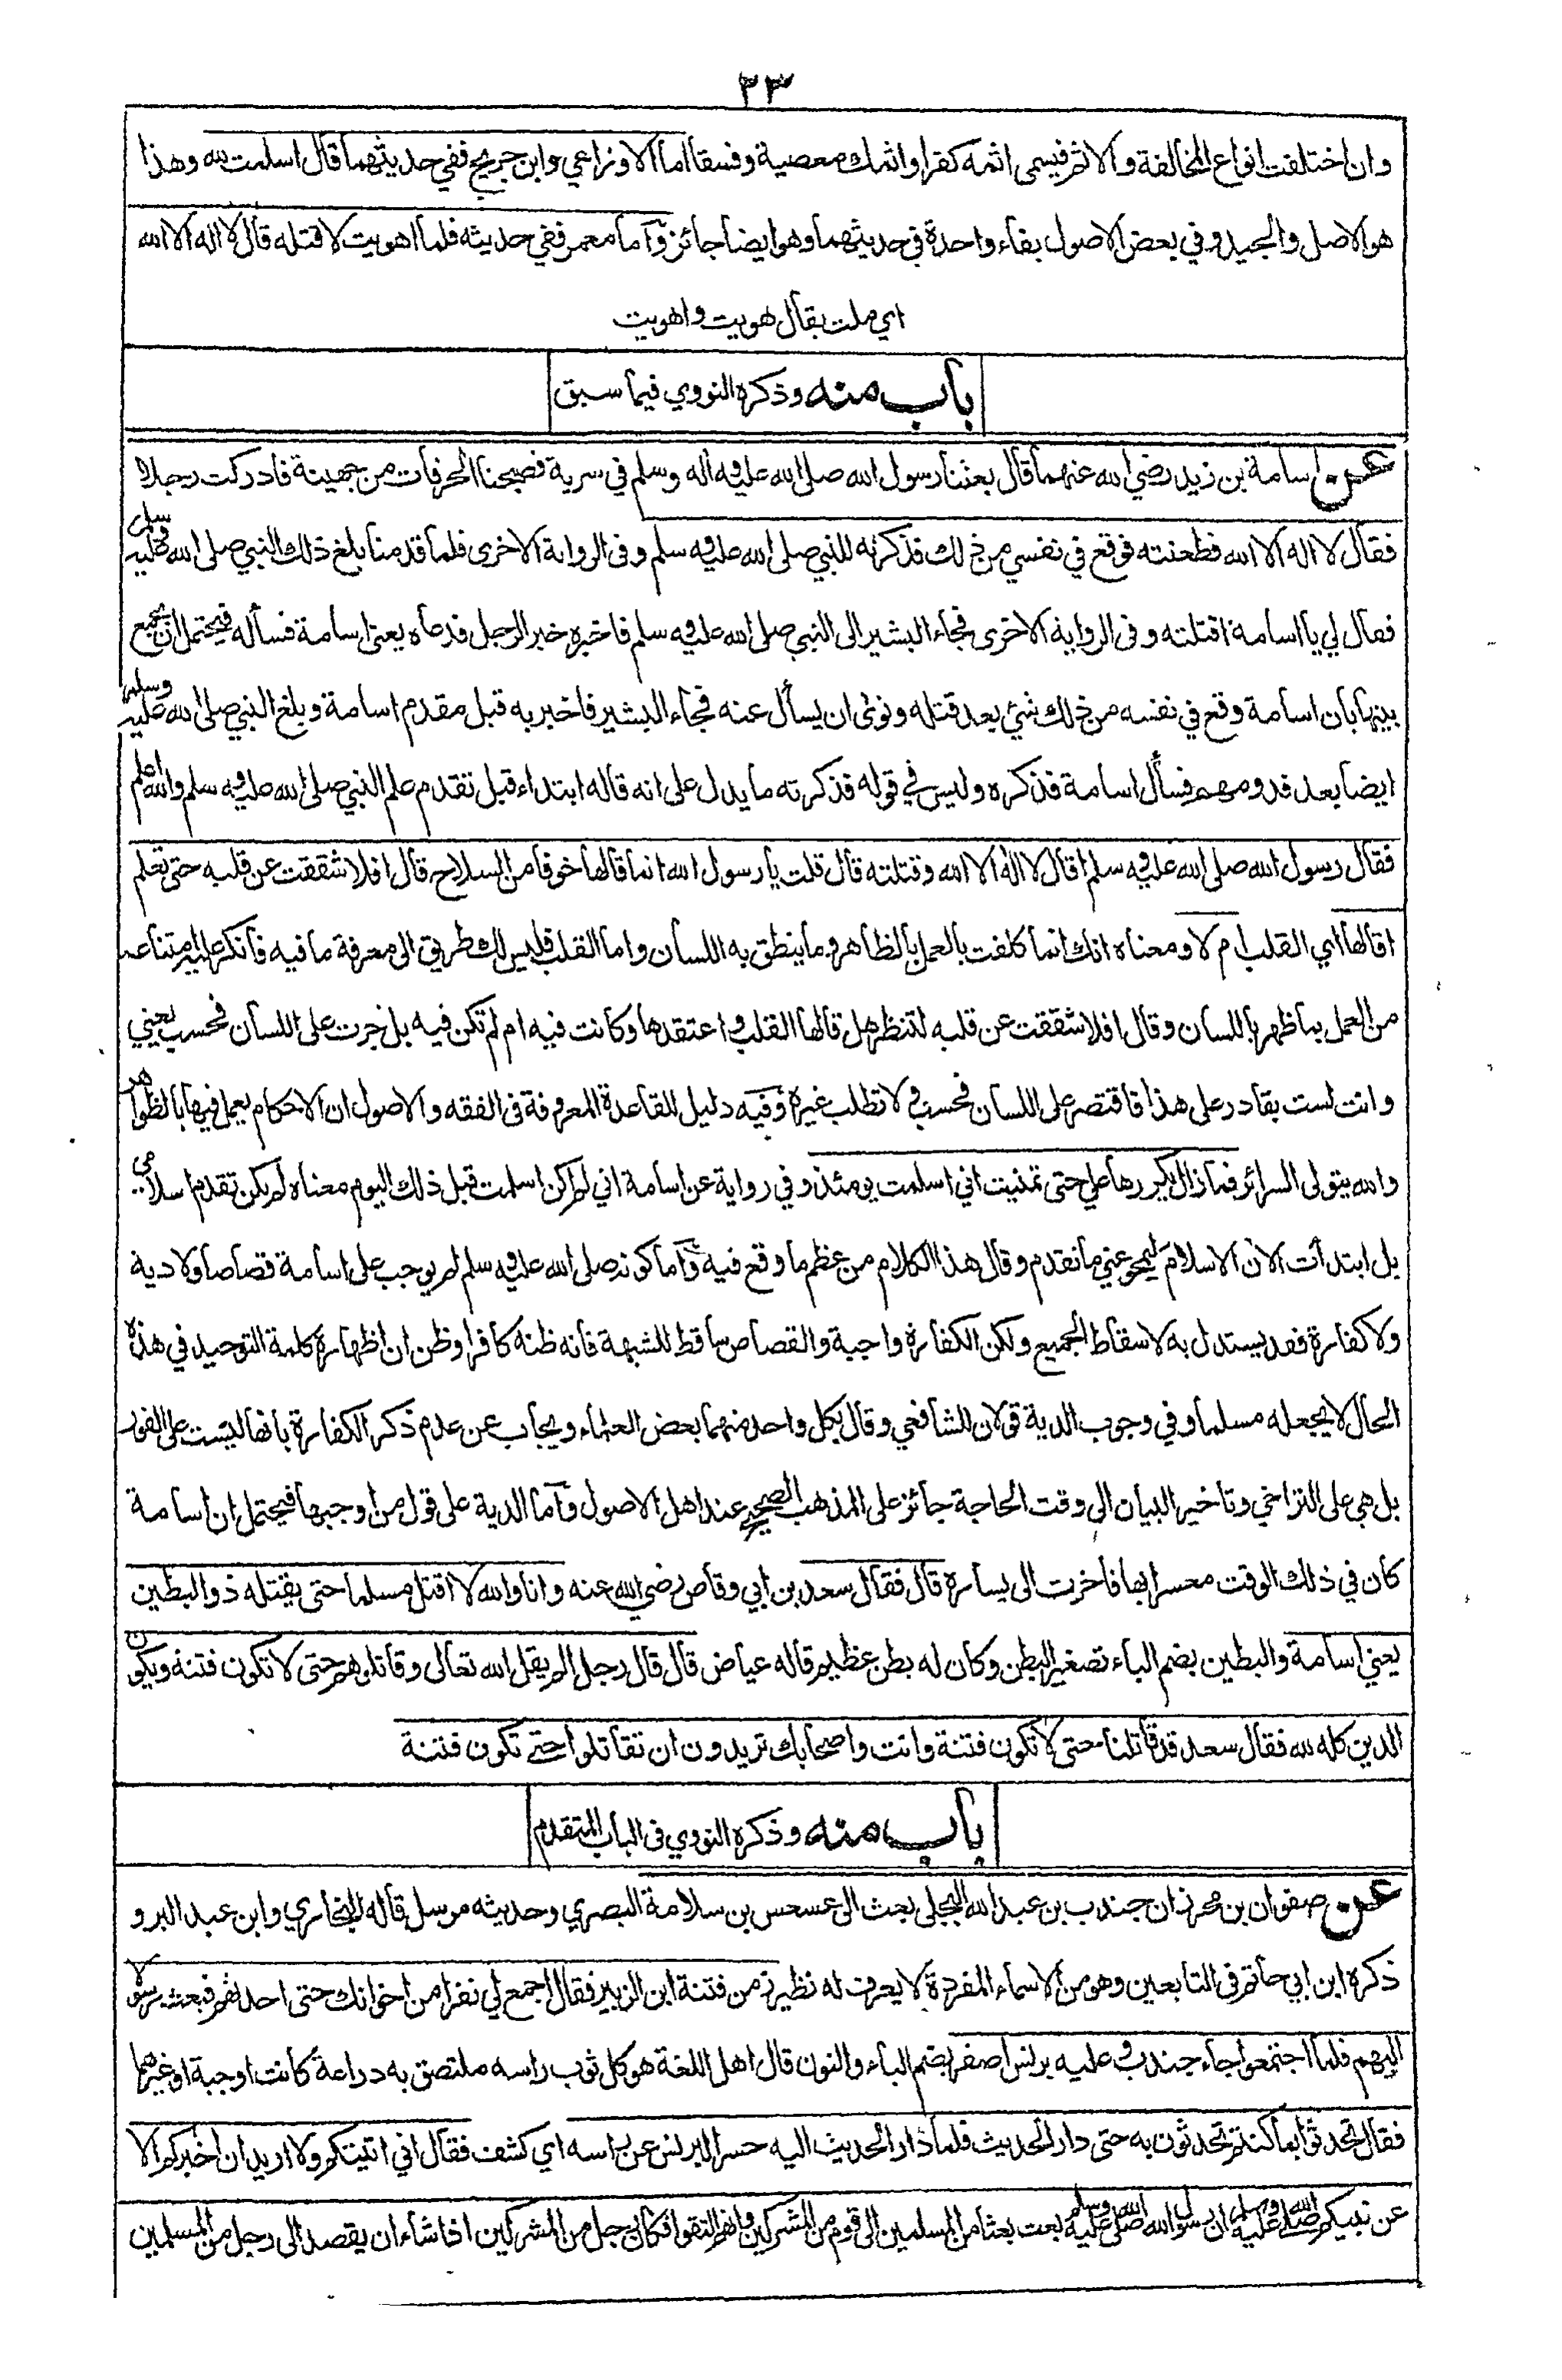 ٣٣
وان اختلفت انواع المخالفة والاثم فيسمى اثمه كفرا واثمك معصية وفسقا اما الاوزاعي وابن جريج ففي حديثهما قال اسلمت لله وهذا
هو الاصل والجيد وفي بعض الاصول بفاء واحدة في حديثهما وهو ايضا جائز وآما معمر ففي حديثه فلما اهويت لاقتله قال لا اله الا الله
اي ملت يقال هويت واهويت
باب منه وذكره النووي فيما سبق
عن اسامة بن زيد رضي الله عنهما قال بعثنا رسول الله صلى الله عليه وآله وسلم في سرية فصبحنا الحرقات من جهينة فادركت رجلا
فقال لا اله الا الله فطعنته فوقع في نفسي من ذلك فذكرته للنبي صلى الله عليه وسلم وفى الرواية الاخرى فلما قدمنا بلغ ذلك النبي صلى الله عليه وسلم
فقال لي يا اسامة اقتلته وفى الرواية الاخرى فجاء البشير الى النبي صلى الله عليه وسلم فاخبره خبر الرجل فدعاه يعني اسامة فسأله فيحتمل ان يجمع
بينها بان اسامة وقع في نفسه من ذلك شئ بعد قتله ونوى ان يسأل عنه فجاء البشير فاخبر به قبل مقدم اسامة وبلغ النبي صلى الله عليه وسلم
ايضا بعد قدومهم فسأل اسامة فذكره وليس في قوله فذكرته ما يدل على انه قاله ابتداء قبل تقدم علم النبي صلى الله عليه وسلم والله اعلم
فقال رسول الله صلى الله عليه وسلم اقال لا اله الا الله وقتلته قال قلت يا رسول الله انما قالها خوفا من السلاح قال افلا شققت عن قلبه حتى تعلم
اقالها اي القلب ام لا ومعناه انك انما كلفت بالعمل بالظاهر وما ينطق به اللسان واما القلب فليس لك طريق الى معرفة ما فيه فانكر عليه امتناعه
من العمل بما ظهر باللسان وقال افلا شققت عن قلبه لتنظر هل قالها القلب واعتقدها وكانت فيه ام لم تكن فيه بل جرت على اللسان فحسب يعني
وانت لست بقادر على هذا فاقتصر على اللسان فحسب لا تطلب غيره وفيه دليل للقاعدة المعروفة فى الفقه والاصول ان الاحكام يعمل فيها بالظواهر
والله يتولى السرائر فما زال يكررها علي حتى تمنيت اني اسلمت يومئذ وفي رواية عن اسامة اني لم اكن اسلمت قبل ذلك اليوم معناه لم يكن تقدم اسلامي
بل ابتدأت الآن الاسلام ليمحو عني ما تقدم وقال هذا الكلام من عظم ما وقع فيه وآما كونه صلى الله عليه وسلم لم يوجب على اسامة قصاصا ولا دية
ولا كفارة فقد يستدل به لاسقاط الجميع ولكن الكفارة واجبة والقصاص ساقط للشبهة فانه ظنه كافرا وظن ان اظهاره كلمة التوحيد في هذه
الحال لا يجعله مسلما وفي وجوب الدية قولان للشافعي وقال بكل واحد منهما بعض العلماء ويجاب عن عدم ذكر الكفارة بانها ليست على الفور
بل هي على التراخي وتاخير البيان الى وقت الحاجة جائز على المذهب الصحيح عند اهل الاصول وآما الدية على قول من اوجبها فيحتمل ان اسامة
كان في ذلك الوقت معسرا بها فاخرت الى يساره قال فقال سعد بن ابي وقاص رضي الله عنه وانا والله لا اقتل مسلما حتى يقتله ذو البطين
يعني اسامة والبطين بضم الباء تصغير البطن وكان له بطن عظيم قاله عياض قال قال رجل الم يقل الله تعالى وقاتلوهم حتى لا تكون فتنة ويكون
الدين كله لله فقال سعد قد قاتلنا حتى لا تكون فتنة وانت واصحابك تريدون ان تقاتلوا حتى تكون فتنة
باب منه وذكره النووي فى الباب المتقدم
عن صفوان بن محرز ان جندب بن عبد الله البجلي بعث الى عسعس بن سلامة البصري وحديثه مرسل قاله البخاري وابن عبد البر و
ذكره ابن ابي حاتم فى التابعين وهو من الاسماء المفردة لا يعرف له نظير زمن فتنة ابن الزبير فقال اجمع لي نفرا من اخوانك حتى احدثهم فبعث رسولا
اليهم فلما اجتمعوا جاء جندب وعليه برنس اصفر بضم الباء والنون قال اهل اللغة هو كل ثوب راسه ملتصق به دراعة كانت او جبة او غيرهما
فقال تحدثوا بما كنتم تحدثون به حتى دار الحديث فلما دار الحديث اليه حسر البرنس عن راسه اي كشف فقال اني اتيتكم ولا اريد ان اخبركم الا
عن نبيكم صلى الله عليه وسلم ان رسول الله صلى الله عليه وسلم بعث بعثا من المسلمين الى قوم من المشركين وانهم التقوا فكان رجل من المشركين اذا شاء ان يقصد الى رجل من المسلمين